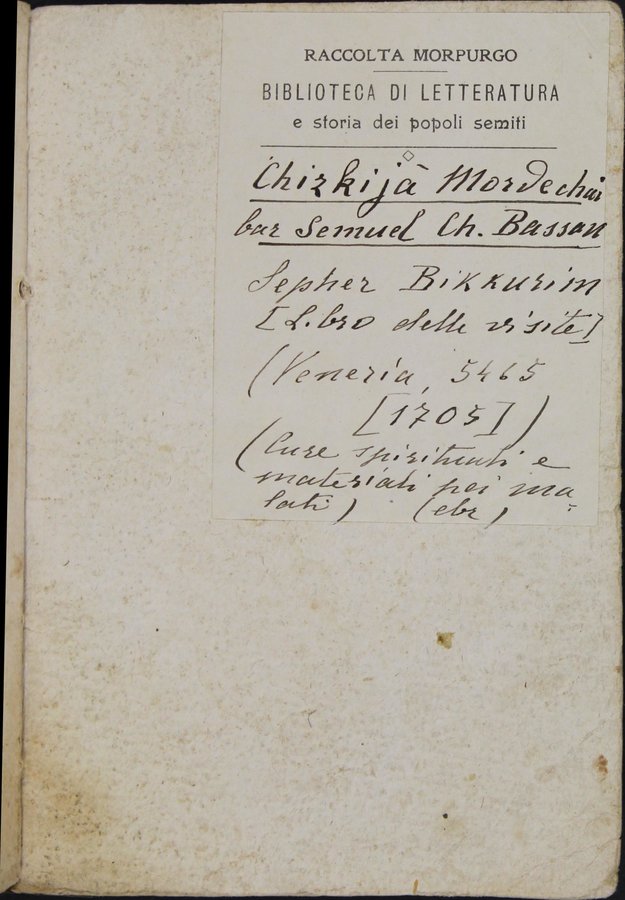 RACCOLTA MORPURGO
BIBLIOTECA DI LETTERATURA
e storia dei popoli semiti
Chizkijà Mordechai
bar Semuel Ch. Bassan
Sepher Bikkurim
[Libro delle visite]
(Venezia, 5465
[1705])
(Cure spirituali e
materiali pei ma-
lati) (ebr)